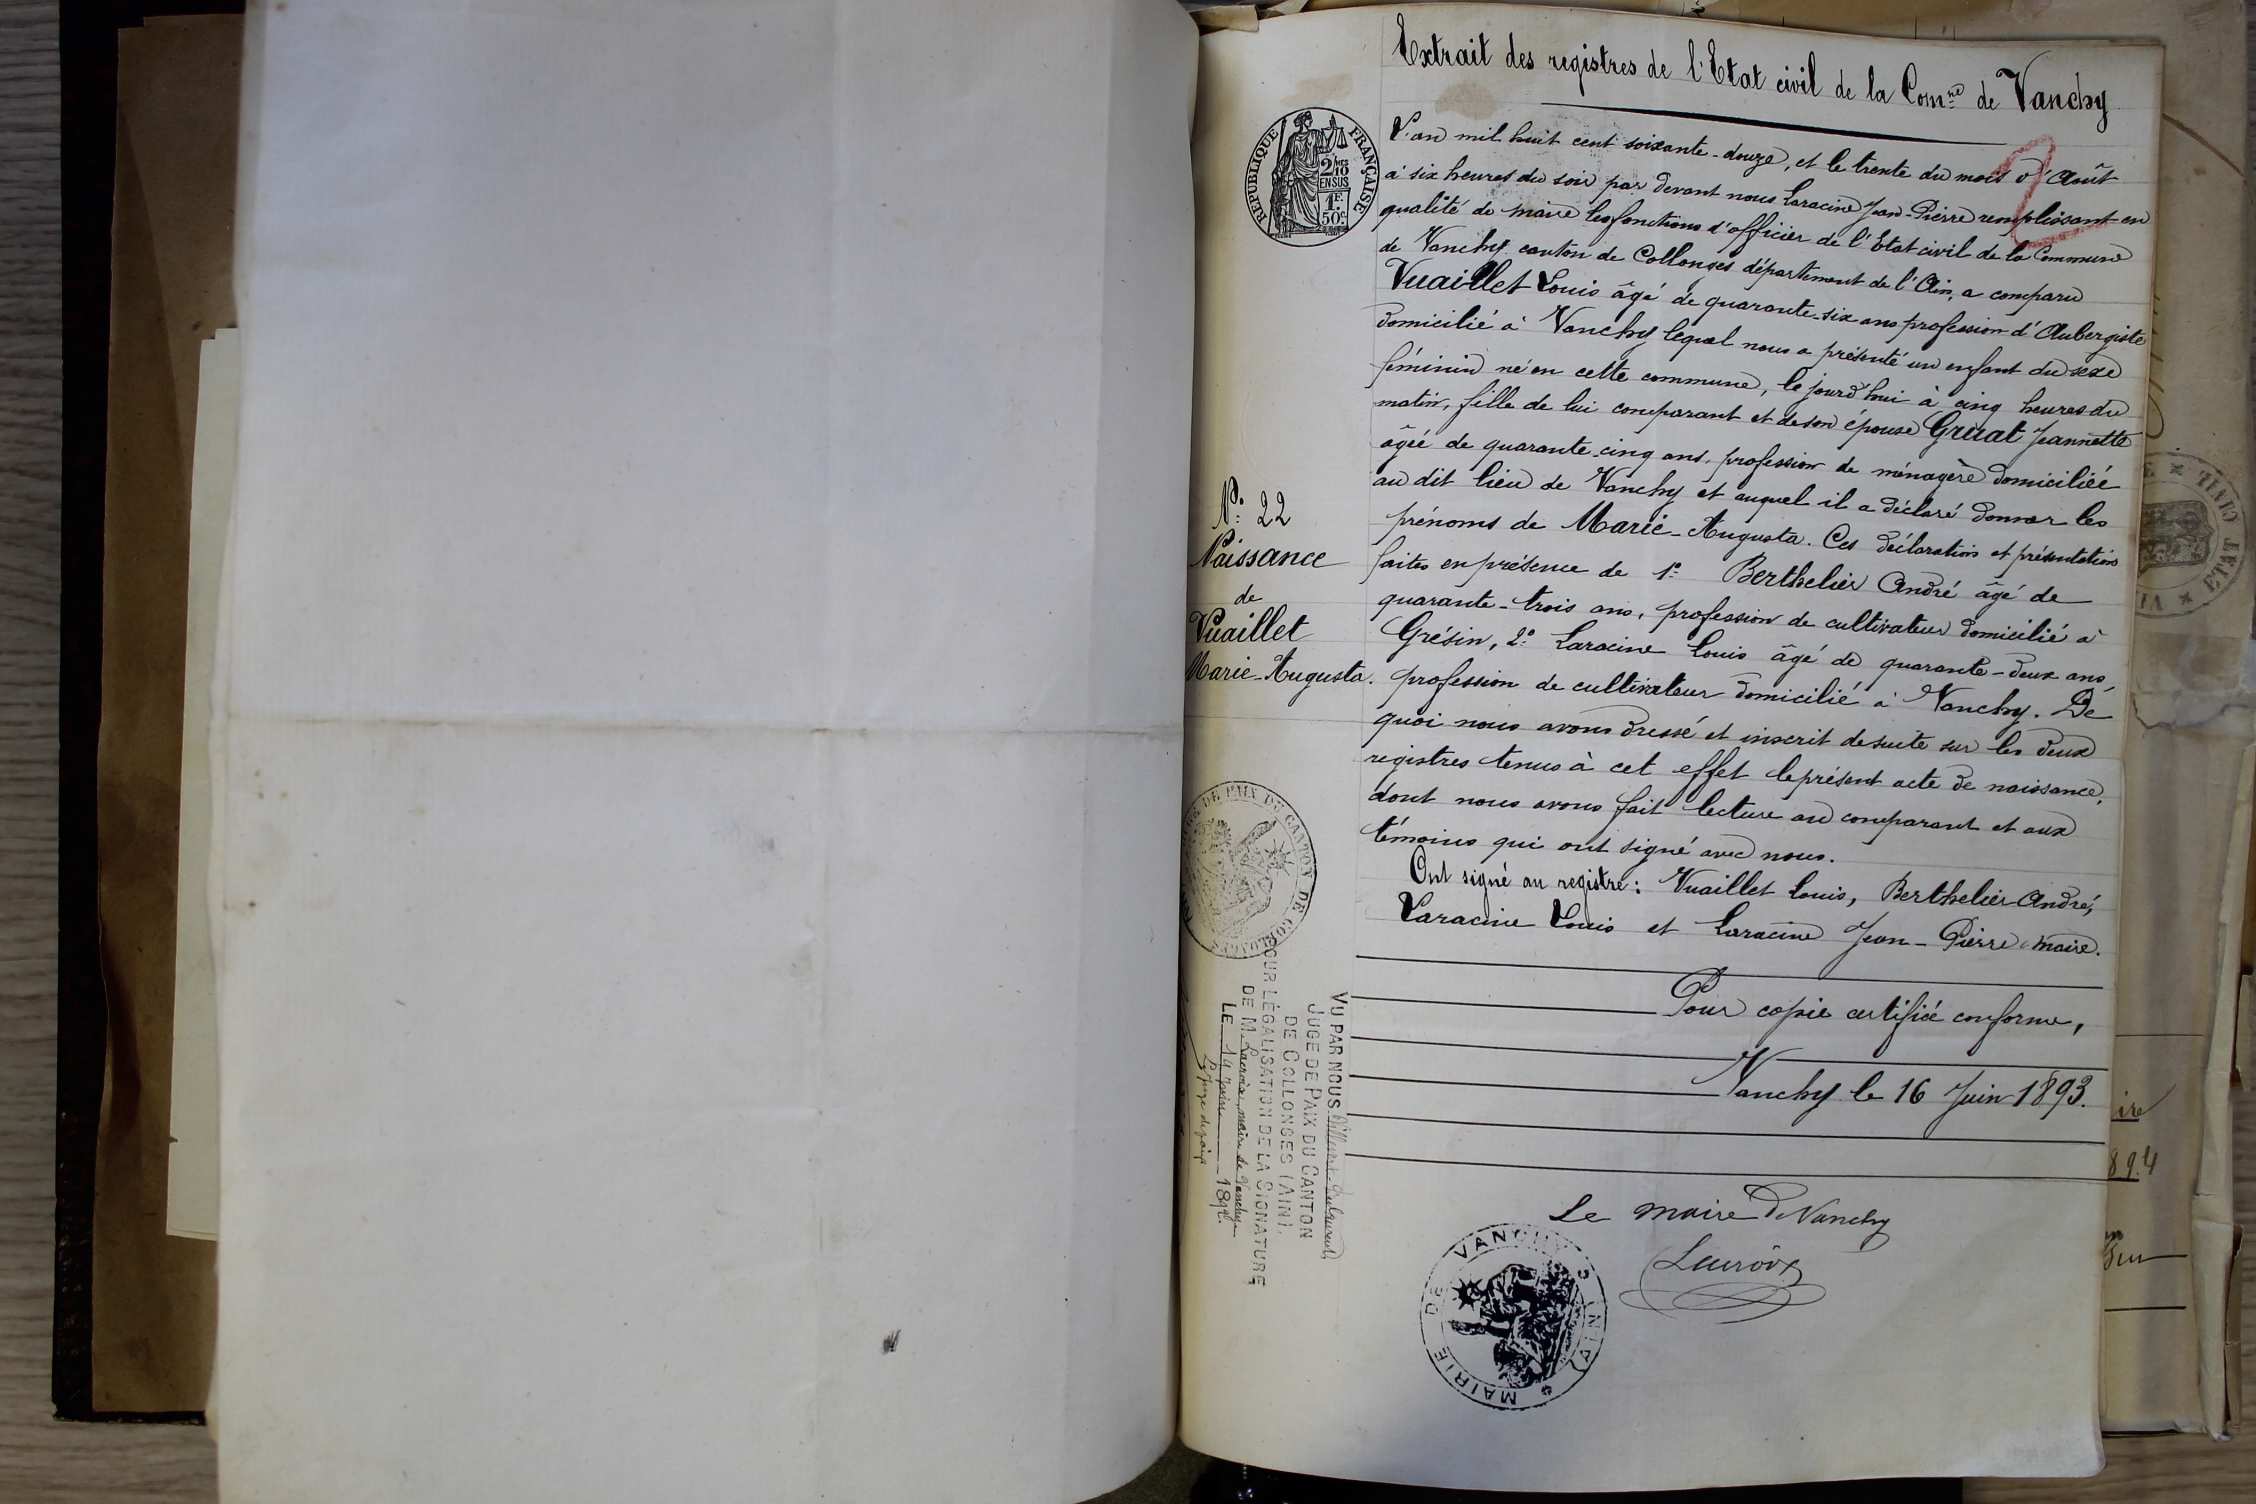 Extrait des registres de l'Etat civil de la Comne de Vanchy
RÉPUBLIQUE FRANÇAISE
2/10 EN SUS
1F. 50c.
L'an mil huit cent soixante-douze, et le trente du mois d'Août
à six heures du soir par devant nous Laracine Jean-Pierre remplissant en
qualité de maire les fonctions d'officier de l'Etat civil de la Commune
de Vanchy canton de Collonges département de l'Ain, a comparu
Vuaillet Louis âgé de quarante-six ans profession d'Aubergiste
domicilié à Vanchy lequel nous a présenté un enfant du sexe
féminin né en cette commune, le jourd'hui à cinq heures du
matin, fille de lui comparant et de son épouse Gruat Jeannette
âgée de quarante-cinq ans, profession de ménagère domiciliée
au dit lieu de Vanchy et auquel il a déclaré donner les
prénoms de Marie-Augusta. Ces déclaration et présentation
faites en présence de 1° Berthelier André âgé de
quarante-trois ans, profession de cultivateur domicilié à
Grésin, 2° Laracine Louis âgé de quarante-deux ans,
profession de cultivateur domicilié à Vanchy. De
quoi nous avons dressé et inscrit de suite sur les deux
registres tenus à cet effet le présent acte de naissance,
dont nous avons fait lecture au comparant et aux
témoins qui ont signé avec nous.
Ont signé au registre: Vuaillet Louis, Berthelier André,
Laracine Louis et Laracine Jean-Pierre maire.
Pour copie certifiée conforme,
Vanchy le 16 Juin 1893.
Le maire d Vanchy
Lacroix
MAIRIE DE VANCHY (AIN)
N° 22
Naissance
de
Vuaillet
Marie-Augusta.
DE PAIX DU CANTON DE COLLONGES
VU PAR NOUS
JUGE DE PAIX DU CANTON
DE COLLONGES (AIN),
POUR LÉGALISATION DE LA SIGNATURE
DE M. Lacroix, maire de Vanchy
LE 19 juin 189
Le juge de paix
ETAT CIVIL
ire
894